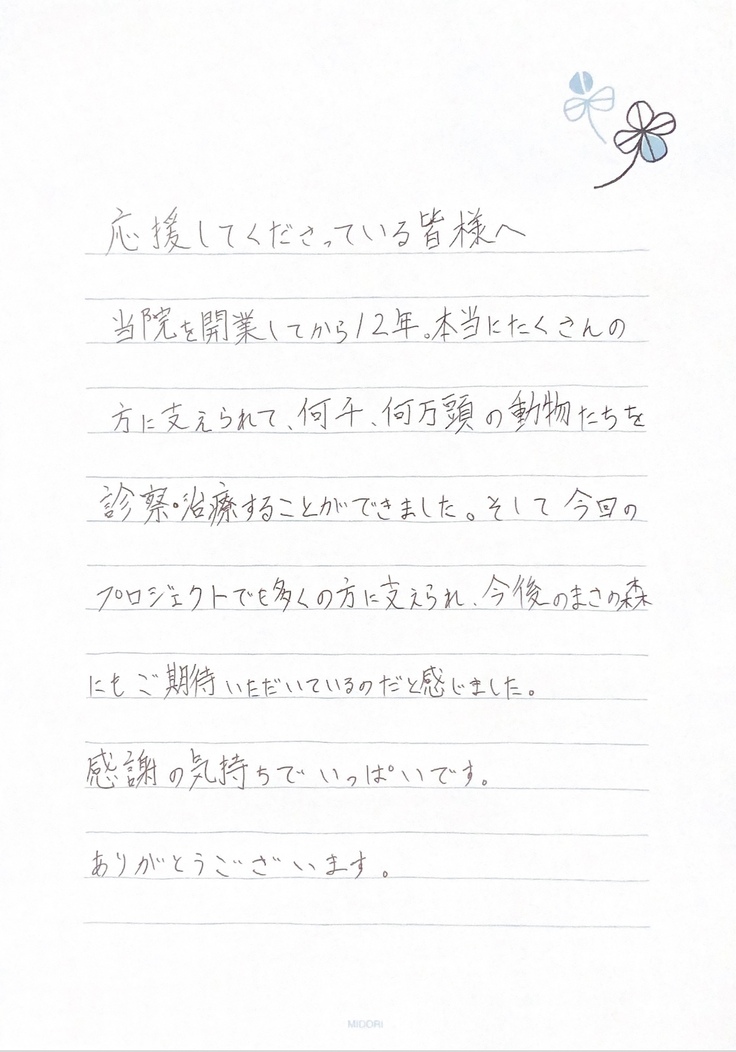 応援してくださっている皆様へ
当院を開業してから12年。本当にたくさんの
方に支えられて、何千、何万頭の動物たちを
診察・治療することができました。そして今回の
プロジェクトでも多くの方に支えられ、今後のまさの森
にもご期待いただいているのだと感じました。
感謝の気持ちでいっぱいです。
ありがとうございます。
MIDORI